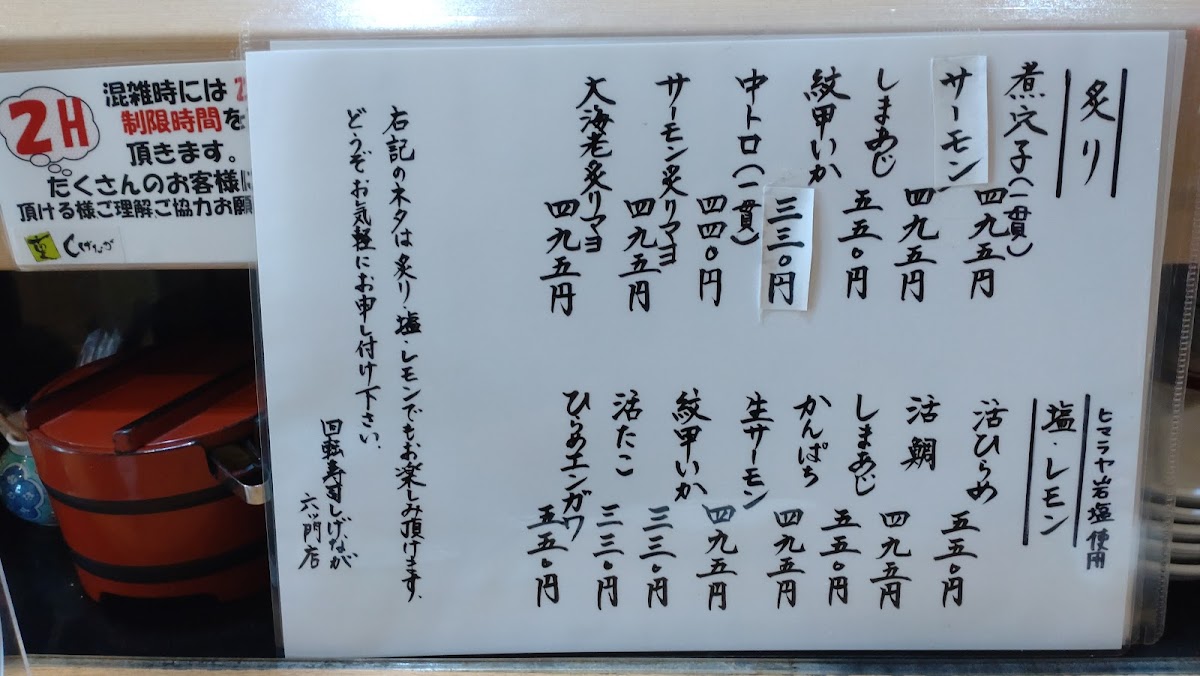 炙り
煮穴子(一貫) 四九五円
サーモン 四九五円
しまあじ 五五〇円
紋甲いか 三三〇円
中トロ(一貫) 四四〇円
サーモン炙りマヨ 四九五円
大海老炙りマヨ 四九五円
ヒマラヤ岩塩使用
塩・レモン
活ひらめ 五五〇円
活鯛 四九五円
しまあじ 五五〇円
かんぱち 四九五円
生サーモン 四九五円
紋甲いか 三三〇円
活たこ 三三〇円
ひらめエンガワ 五五〇円
右記のネタは炙り・塩・レモンでもお楽しみ頂けます、
どうぞお気軽にお申し付け下さい、
回転寿司しげなが
六ツ門店
2H
混雑時には 2
制限時間を
頂きます。
たくさんのお客様に
頂ける様ご理解ご協力お願
しげなが